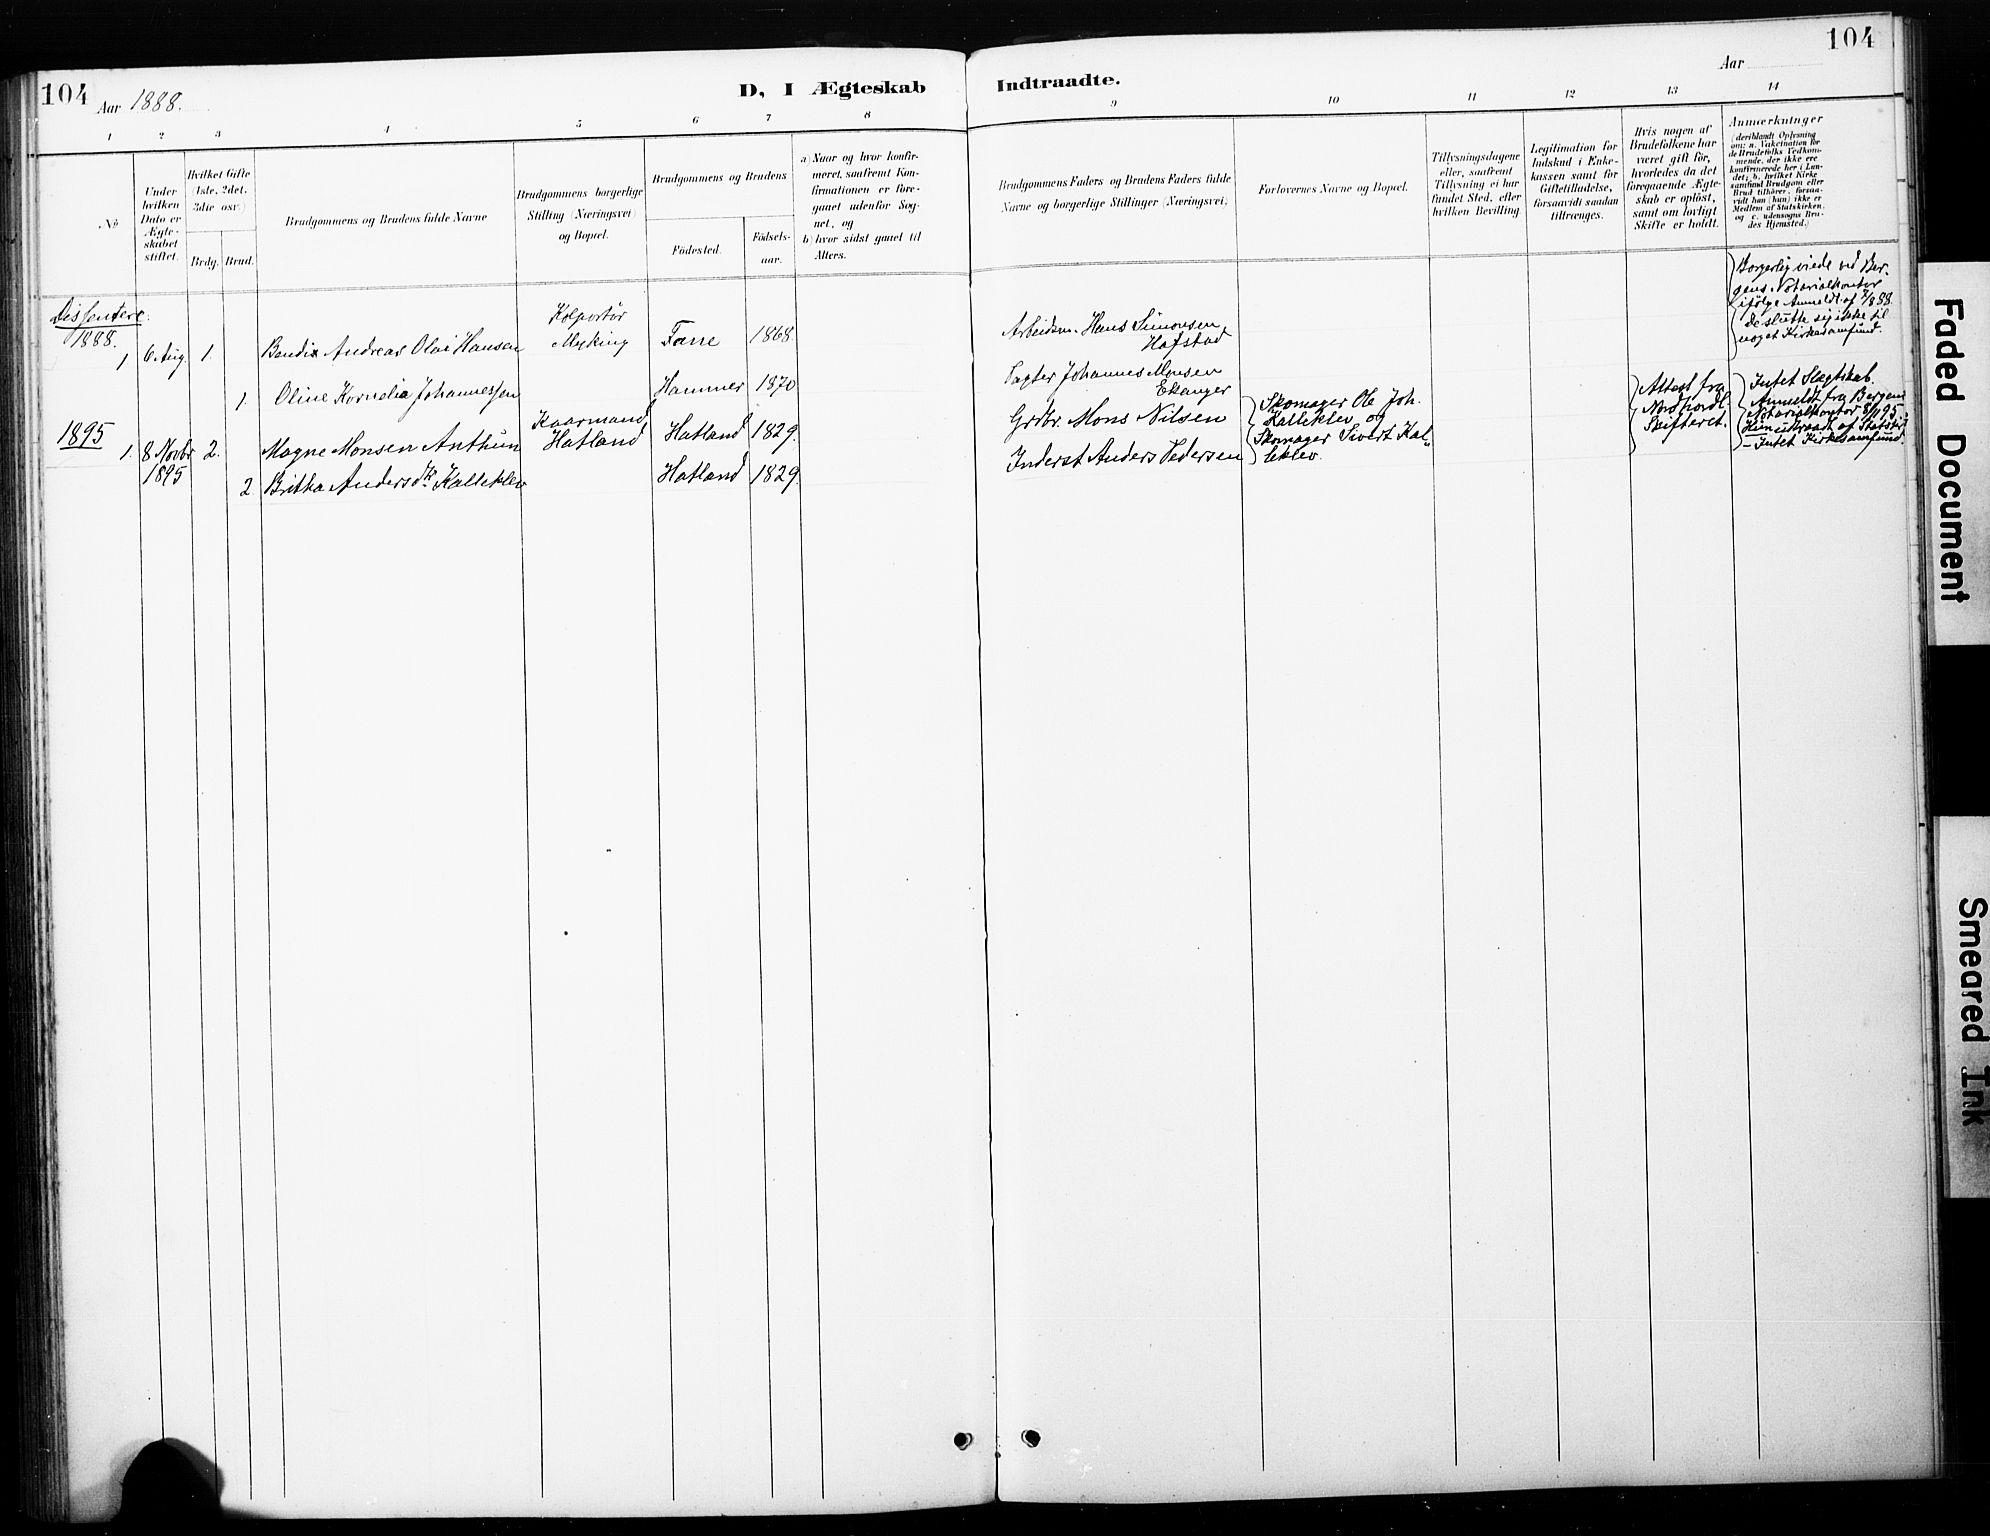 104
Aar 1888.
D, I Ægteskab
Indtraadte.
Aar
104
1 2 3 4 5 6 7 8 9 10 11 12 13 14
No
Under
hvilken
Dato er
Ægte-
skabet
stiftet.
Hvilket Gifte
(1ste, 2det,
3die osv.)
Brdg.
Brud.
Brudgommens og Brudens fulde Navne
Brudgommens borgerlige
Stilling (Næringsvei)
og Bopæl.
Brudgommens og Brudens
Födested.
Födsels-
aar.
a) Naar og hvor konfir-
meret, saafremt Kon-
firmationen er fore-
gaaet udenfor Sog-
net, og
b) hvor sidst gaaet til
Alters.
Brudgommens Faders og Brudens Faders fulde
Navne og borgerlige Stillinger (Næringsvei)
Forlovernes Navne og Bopæl.
Tillysningsdagene
eller, saafremt
Tillysning ei har
fundet Sted, efter
hvilken Bevilling
Legitimation for
Indskud i Enke-
kassen samt for
Giftetilladelse,
forsaavidt saadan
tiltrænges.
Hvis nogen af
Brudefolkene har
været gift før,
hvorledes da det
foregaaende Ægte-
skab er opløst,
samt om lovligt
Skifte er holdt.
Anmærkninger
(deriblandt Oplysning
om: a. Vakcination for
de Brudefolks Vedkom-
mende, der ikke ere
konfirmerede her i Lan-
det; b. hvilket Kirke
samfund Brudgom eller
Brud tilhører, forsaa-
vidt han (hun) ikke er
Medlem af Statskirken,
og c. udensogns Bru-
des Hjemsted.)
Dissentere:
1888.
1 6 Aug. 1. Bendix Andreas Olai Hansen
Kolportør
Myking
Fane 1868.
Arbeidsm. Hans Simonsen,
Hafstad
Borgerlig viede ved Ber-
gens Notarialkontor
ifølge Anmeldt af 7/8 88.
De slutte sig ikke til
noget Kirkesamfund.
1. Oline Kornelia Johannessen
Hammer 1870
Johannes Monsen
Ekanger
1895
1. 8 Novbr 2. Magne Monsen Anthun
1895
Kaarmand
Hatland
Hatland 1829.
Grdbr. Mons Nilsen
Skomager Ole Joh.
Kalleklev og
Skomager Sivert Kal-
leklev.
Attest fra
Nordhordl.
Skifteret.
Intet Slægtskab.
Anmeldt fra Bergens
Notarialkontor 8/11 95.
Hun udtraadt af Statsk.
– Intet Kirkesamfund.
2. Britha Andersdtr Kalleklev
Hatland 1829.
Inderst Anders Pedersen
Faded Document
Smeared Ink